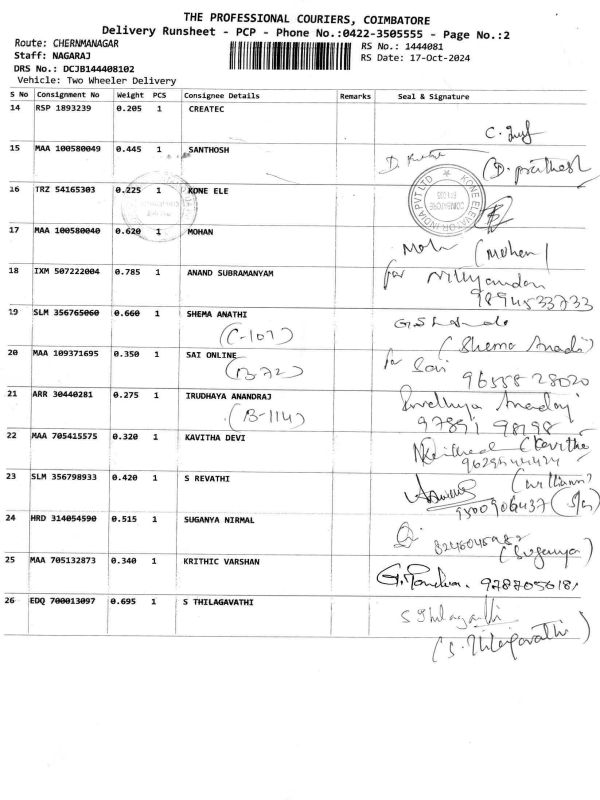 THE PROFESSIONAL COURIERS, COIMBATORE
Delivery Runsheet - PCP - Phone No.:0422-3505555 - Page No.:2
Route: CHERNMANAGAR
RS No.: 1444081
Staff: NAGARAJ
RS Date: 17-Oct-2024
DRS No.: DCJB144408102
Vehicle: Two Wheeler Delivery
S No Consignment No Weight PCS Consignee Details Remarks Seal & Signature
14 RSP 1893239 0.205 1 CREATEC
15 MAA 100580049 0.445 1 SANTHOSH
(D. prathesh
16 TRZ 54165303 0.225 1 KONE ELE
KONE ELEVATOR INDIA PVT LTD
COIMBATORE
17 MAA 100580040 0.620 1 MOHAN
(Mohan)
18 IXM 507222004 0.785 1 ANAND SUBRAMANYAM
for
9894533733
19 SLM 356765060 0.660 1 SHEMA ANATHI
(C-107)
(Shema Anadi)
20 MAA 109371695 0.350 1 SAI ONLINE
for Sai
(B-72)
96558 28020
21 ARR 30440281 0.275 1 IRUDHAYA ANANDRAJ
(B-114)
97891 98198
22 MAA 705415575 0.320 1 KAVITHA DEVI
(Kavitha
23 SLM 356798933 0.420 1 S REVATHI
(williams)
9500906437
24 HRD 314054590 0.515 1 SUGANYA NIRMAL
(Suganya)
25 MAA 705132873 0.340 1 KRITHIC VARSHAN
9787056181
26 EDQ 700013097 0.695 1 S THILAGAVATHI
S Thilagavathi
(S. Thilagavathi)